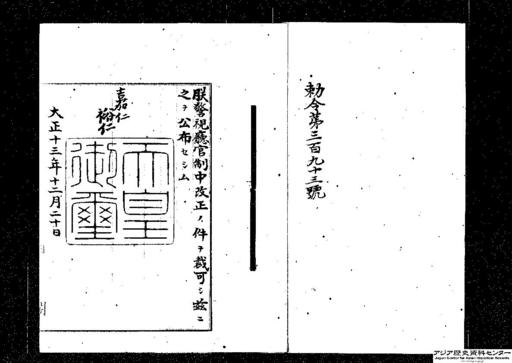 勅令第三百九十三號
朕警視廳官制中改正ノ件ヲ裁可シ茲ニ
之ヲ公布セシム
嘉仁
裕仁
天皇御璽
大正十三年十二月二十日
アジア歴史資料センター
Japan Center for Asian Historical Records